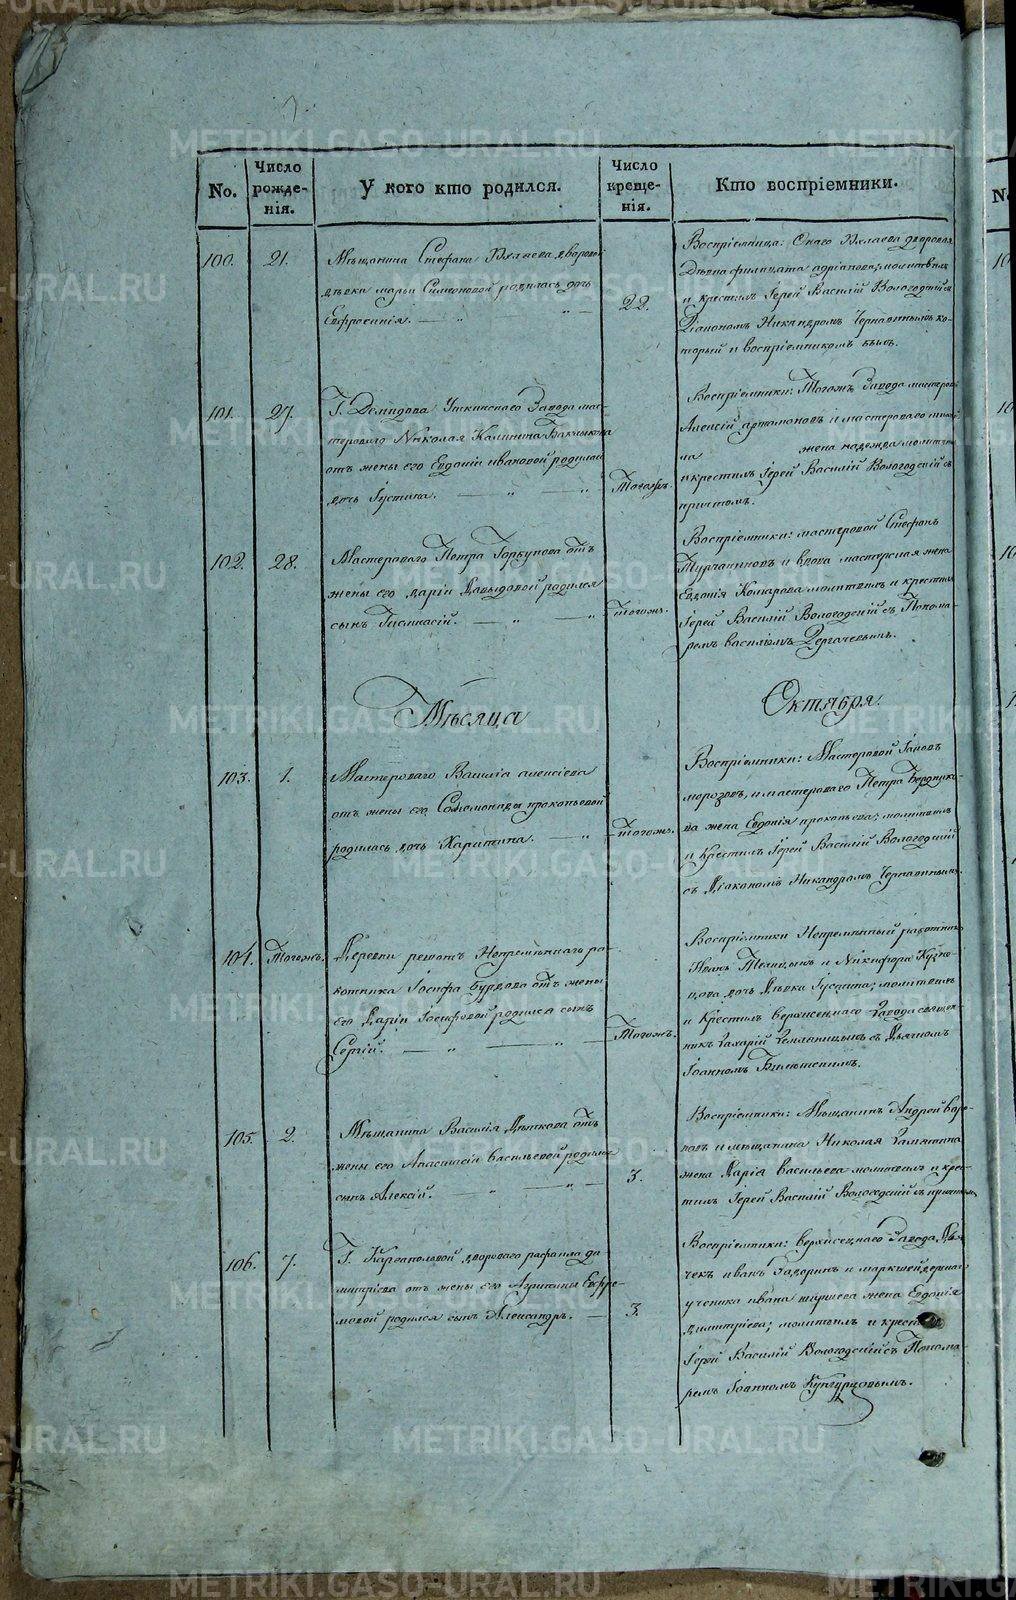 No.
Число рожде-нія.
У кого кто родился.
Число креще-нія.
Кто воспріемники.
100.
21.
Мѣщанина Стефана дворовой
дѣвки марьи Симеоновой родилась дочь
Евфросинія.
22.
Воспріемница: Онаго дворовая
дѣвка адріанова; молитвилъ
и крестилъ Іерей Василій Вологодскій съ
Діакономъ Никандромъ ко-
торый и воспріемникомъ былъ.
101.
27.
Г. Демидова Уткинскаго Завода мас-
тероваго Николая Калинина
отъ жены его Евдокіи ивановой родилась
дочь Іустина.
Тогожъ.
Воспріемники: Тогожъ Завода мастеровой
Алексій артамоновъ и мастероваго
жена надежда
и крестилъ Іерей Василій Вологодскій съ
причтомъ.
102.
28.
Мастероваго Петра Горбунова отъ
жены его Даріи Давыдовой родился
сынъ
тогожъ.
Воспріемники: мастеровой Стефанъ
Турчаниновъ и вдова мастерская жена
Евдокія Комарова молитвилъ и крестилъ
Іерей Василій Вологодскій съ Понома-
ремъ василіемъ Дергачевымъ.
Мѣсяца
Октября.
103.
1.
Мастероваго Василія алексіева
отъ жены его Соломониды прокопьевой
родилась дочь Харитина.
тогожъ.
Воспріемники: Мастеровой
морозовъ, и мастероваго Петра
ва жена Евдокія прокопьева; молитвилъ
и Крестилъ Іерей Василій Вологодскій
съ Діакономъ Никандромъ
104.
Тогожъ.
Деревни решотъ Непремѣннаго ра-
ботника Іосифа Бурдова отъ жены
его Даріи Іосифовой родился сынъ
Сергій.
Тогожъ.
Воспріемники Непремѣнный работникъ
Иванъ и Никифора Кузне-
цова дочь Дѣвка молитвилъ
и Крестилъ верхисецкаго Завода священ-
никъ Захарій Земляницынъ съ Дьячкомъ
Іоанномъ
105.
2.
Мѣщанина Василія отъ
жены его Анастасіи васильевой родился
сынъ Алексій.
3.
Воспріемники: Мѣщанинъ Андрей
и мѣщанина Николая Замятина
жена Дарія васильева молитвилъ и крес-
тилъ Іерей Василій Вологодскій съ причтомъ.
106.
7.
Г. Каргаполовой двороваго рафаила ди-
митріева отъ жены его Агрипины Ефре-
мовой родился сынъ Александръ.
3.
Воспріемники: верхисецкаго Завода Дья-
чекъ иванъ и маркшейдерскаго
ученика ивана жена Евдокія
димитріева; молитвилъ и крест
Іерей Василій Вологодскій съ Понома-
ремъ Іоанномъ Кунгурцовымъ.
METRIKI.GASO-URAL.RU